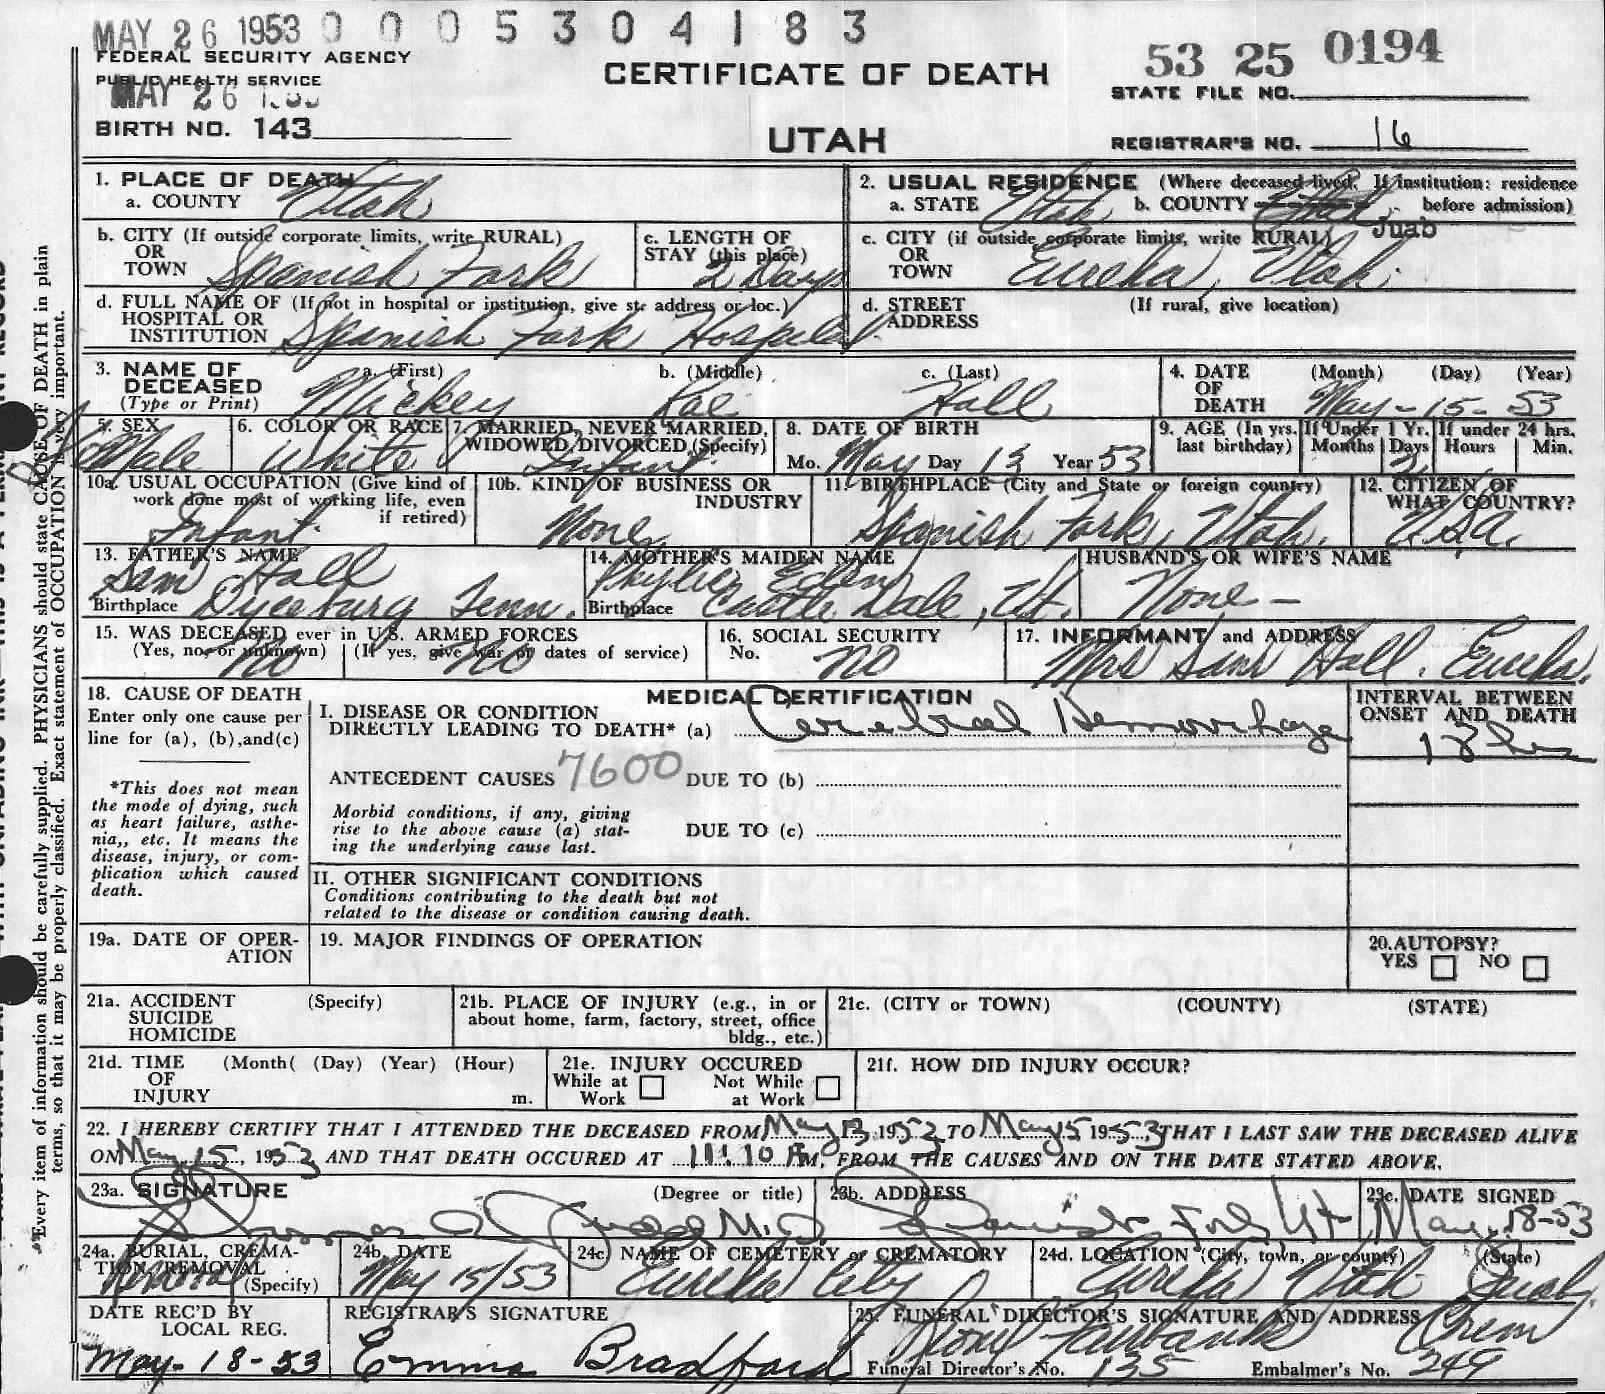 MAY 26 1953 0 0 0 5 3 0 4 1 8 3
FEDERAL SECURITY AGENCY
PUBLIC HEALTH SERVICE
MAY 26
CERTIFICATE OF DEATH
53 25 0194
STATE FILE NO.
BIRTH NO. 143
UTAH
REGISTRAR'S NO. 16
1. PLACE OF DEATH
a. COUNTY Utah
2. USUAL RESIDENCE (Where deceased lived. If institution: residence before admission)
a. STATE Utah b. COUNTY Utah Juab
b. CITY (If outside corporate limits, write RURAL)
OR
TOWN Spanish Fork
c. LENGTH OF
STAY (this place)
2 Days
c. CITY (if outside corporate limits, write RURAL)
OR
TOWN Eureka, Utah.
d. FULL NAME OF (If not in hospital or institution, give st. address or loc.)
HOSPITAL OR
INSTITUTION Spanish Fork Hospital
d. STREET (If rural, give location)
ADDRESS
3. NAME OF a. (First) b. (Middle) c. (Last)
DECEASED
(Type or Print) Mickey Rae Hall
4. DATE (Month) (Day) (Year)
OF
DEATH May - 15 - 53
5. SEX
Male
6. COLOR OR RACE
White
7. MARRIED, NEVER MARRIED,
WIDOWED, DIVORCED (Specify)
Infant
8. DATE OF BIRTH
Mo. May Day 13 Year 53
9. AGE (In yrs. last birthday)
If Under 1 Yr.
Months Days
2
If under 24 hrs.
Hours Min.
10a. USUAL OCCUPATION (Give kind of
work done most of working life, even
if retired)
Infant.
10b. KIND OF BUSINESS OR
INDUSTRY
None
11. BIRTHPLACE (City and State or foreign country)
Spanish Fork, Utah.
12. CITIZEN OF
WHAT COUNTRY?
U.S.A.
13. FATHER'S NAME
Sam Hall
Birthplace Dyersburg Tenn.
14. MOTHER'S MAIDEN NAME
Eden
Birthplace Castle Dale, Ut.
HUSBAND'S OR WIFE'S NAME
None -
15. WAS DECEASED ever in U.S. ARMED FORCES
(Yes, no, or unknown) (If yes, give war or dates of service)
No No
16. SOCIAL SECURITY
No. No
17. INFORMANT and ADDRESS
Mrs Sam Hall. Eureka.
18. CAUSE OF DEATH
Enter only one cause per
line for (a), (b),and(c)
*This does not mean
the mode of dying, such
as heart failure, asthe-
nia,, etc. It means the
disease, injury, or com-
plication which caused
death.
MEDICAL CERTIFICATION
I. DISEASE OR CONDITION
DIRECTLY LEADING TO DEATH* (a) Cerebral Hemorrhage
INTERVAL BETWEEN
ONSET AND DEATH
18 hrs
ANTECEDENT CAUSES 7600 DUE TO (b)
Morbid conditions, if any, giving
rise to the above cause (a) stat-
ing the underlying cause last.
DUE TO (c)
II. OTHER SIGNIFICANT CONDITIONS
Conditions contributing to the death but not
related to the disease or condition causing death.
19a. DATE OF OPER-
ATION
19. MAJOR FINDINGS OF OPERATION
20. AUTOPSY?
YES NO
21a. ACCIDENT (Specify)
SUICIDE
HOMICIDE
21b. PLACE OF INJURY (e.g., in or
about home, farm, factory, street, office
bldg., etc.)
21c. (CITY or TOWN) (COUNTY) (STATE)
21d. TIME (Month( (Day) (Year) (Hour)
OF
INJURY m.
21e. INJURY OCCURED
While at Work Not While at Work
21f. HOW DID INJURY OCCUR?
22. I HEREBY CERTIFY THAT I ATTENDED THE DECEASED FROM May 13 1953 TO May 15 1953 THAT I LAST SAW THE DECEASED ALIVE
ON May 15, 1953 AND THAT DEATH OCCURED AT 11:10 PM, FROM THE CAUSES AND ON THE DATE STATED ABOVE.
23a. SIGNATURE (Degree or title)
M.D.
23b. ADDRESS
Spanish Fork, Ut
23c. DATE SIGNED
May. 18-53
24a. BURIAL, CREMA-
TION, REMOVAL
(Specify) Removal
24b. DATE
May 15/53
24c) NAME OF CEMETERY or CREMATORY
Eureka City
24d. LOCATION (City, town, or county) (State)
Eureka Utah Juab.
DATE REC'D BY
LOCAL REG.
May - 18 - 53
REGISTRAR'S SIGNATURE
Emma Bradford
25. FUNERAL DIRECTOR'S SIGNATURE AND ADDRESS
Fairbanks Orem
Funeral Director's No. 135 Embalmer's No. 249
*Every item of information should be carefully supplied. PHYSICIANS should state CAUSE OF DEATH in plain
terms, so that it may be properly classified. Exact statement of OCCUPATION is very important.